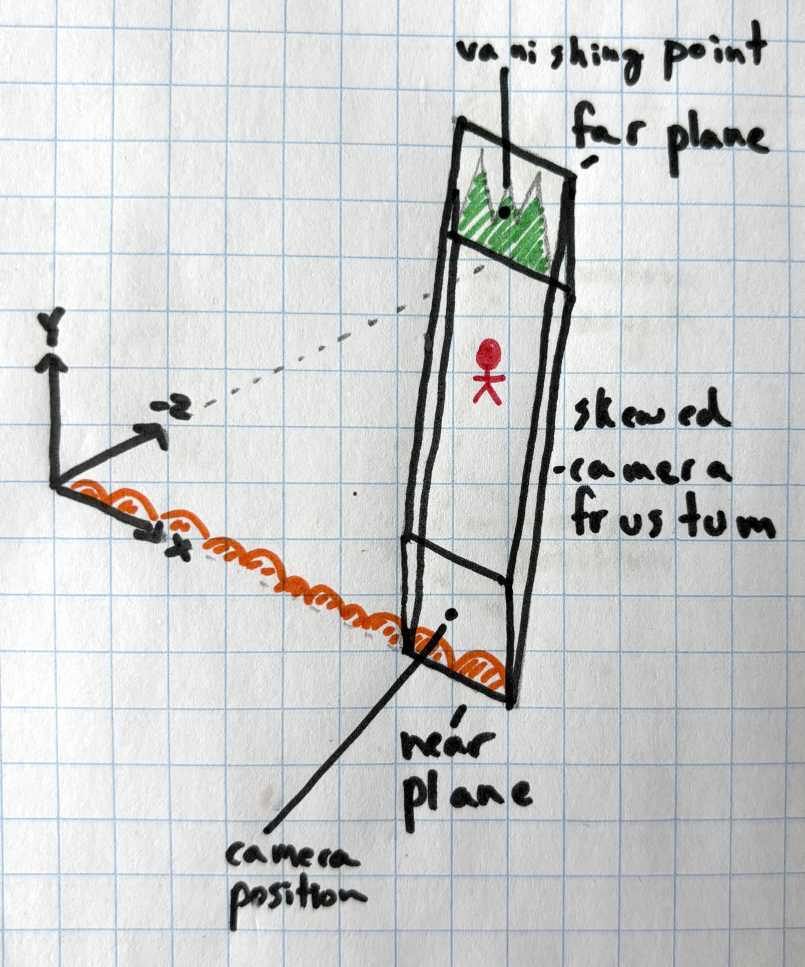 vanishing point
far plane
Y
-z
x
skewed
camera
frustum
near
plane
camera
position